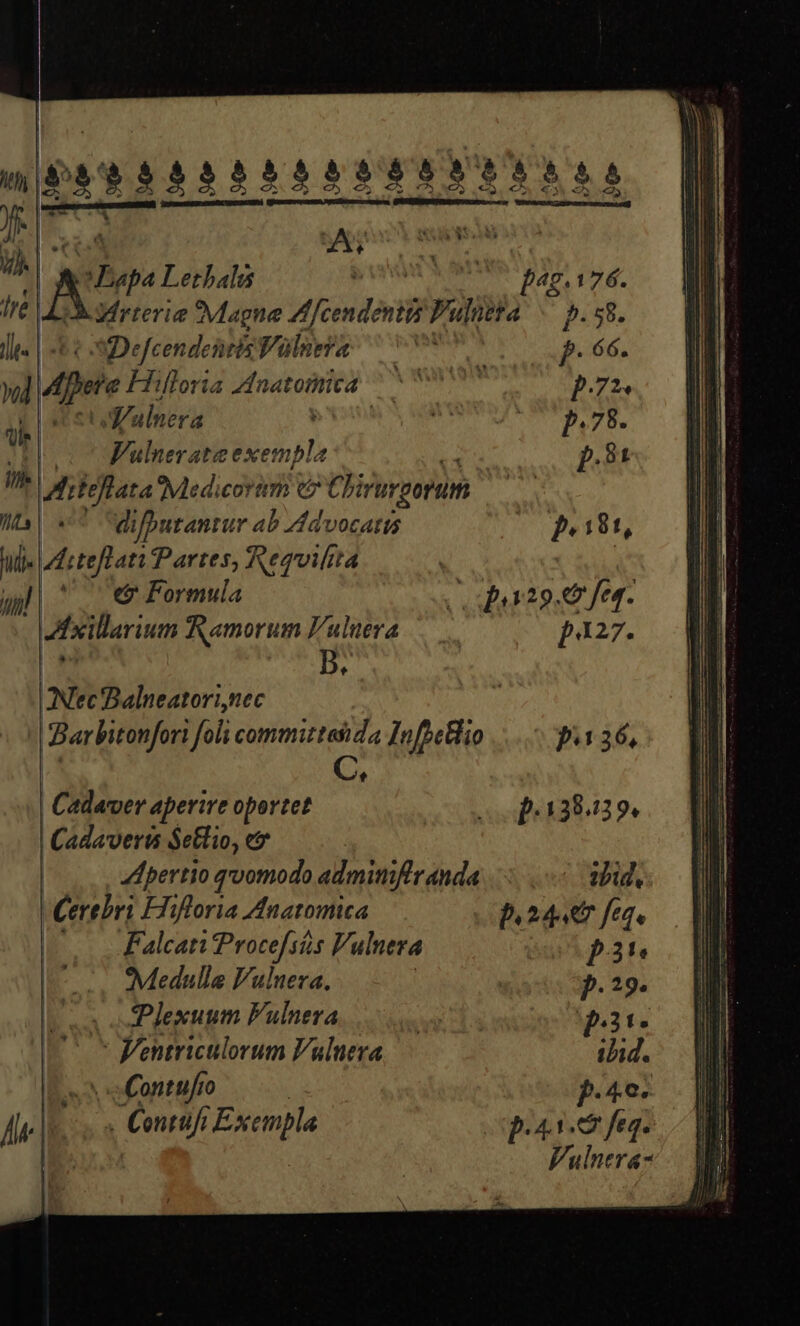 A.
Lapa Lethalis pag. 176.
Arteriæ Magnæ Aſcendentis Vulnera p. 58.
Deſcendentis Vulnera p. 66.
Aſperæ Hiſtoria Anatomica p.72.
Vulnera p.78.
Vulneratæ exempla p.81
Atteſtata Medicorum & Chirurgorum
diſputantur ab Advocatis p. 181,
Atteſtati Partes, Reqviſita
& Formula p. 129. & ſeq.
Axillarium Ramorum Vulnera p.127.
B.
Nec Balneatori, nec
Barbitonſori ſoli committenda Inſpectio p. 136,
C.
Cadaver aperire oportet p. 138.139.
Cadaveris Sectio, &
Apertio qvomodo adminiſtranda ibid.
Cerebri Hiſtoria Anatomica p. 24. & ſeq.
Falcati Proceſsûs Vulnera p 31.
Medullæ Vulnera. p. 29.
Plexuum Vulnera p.31.
Ventriculorum Vulnera ibid.
Contuſio p.40.
Contuſi Exempla p.41. & ſeq.
Vulnera-